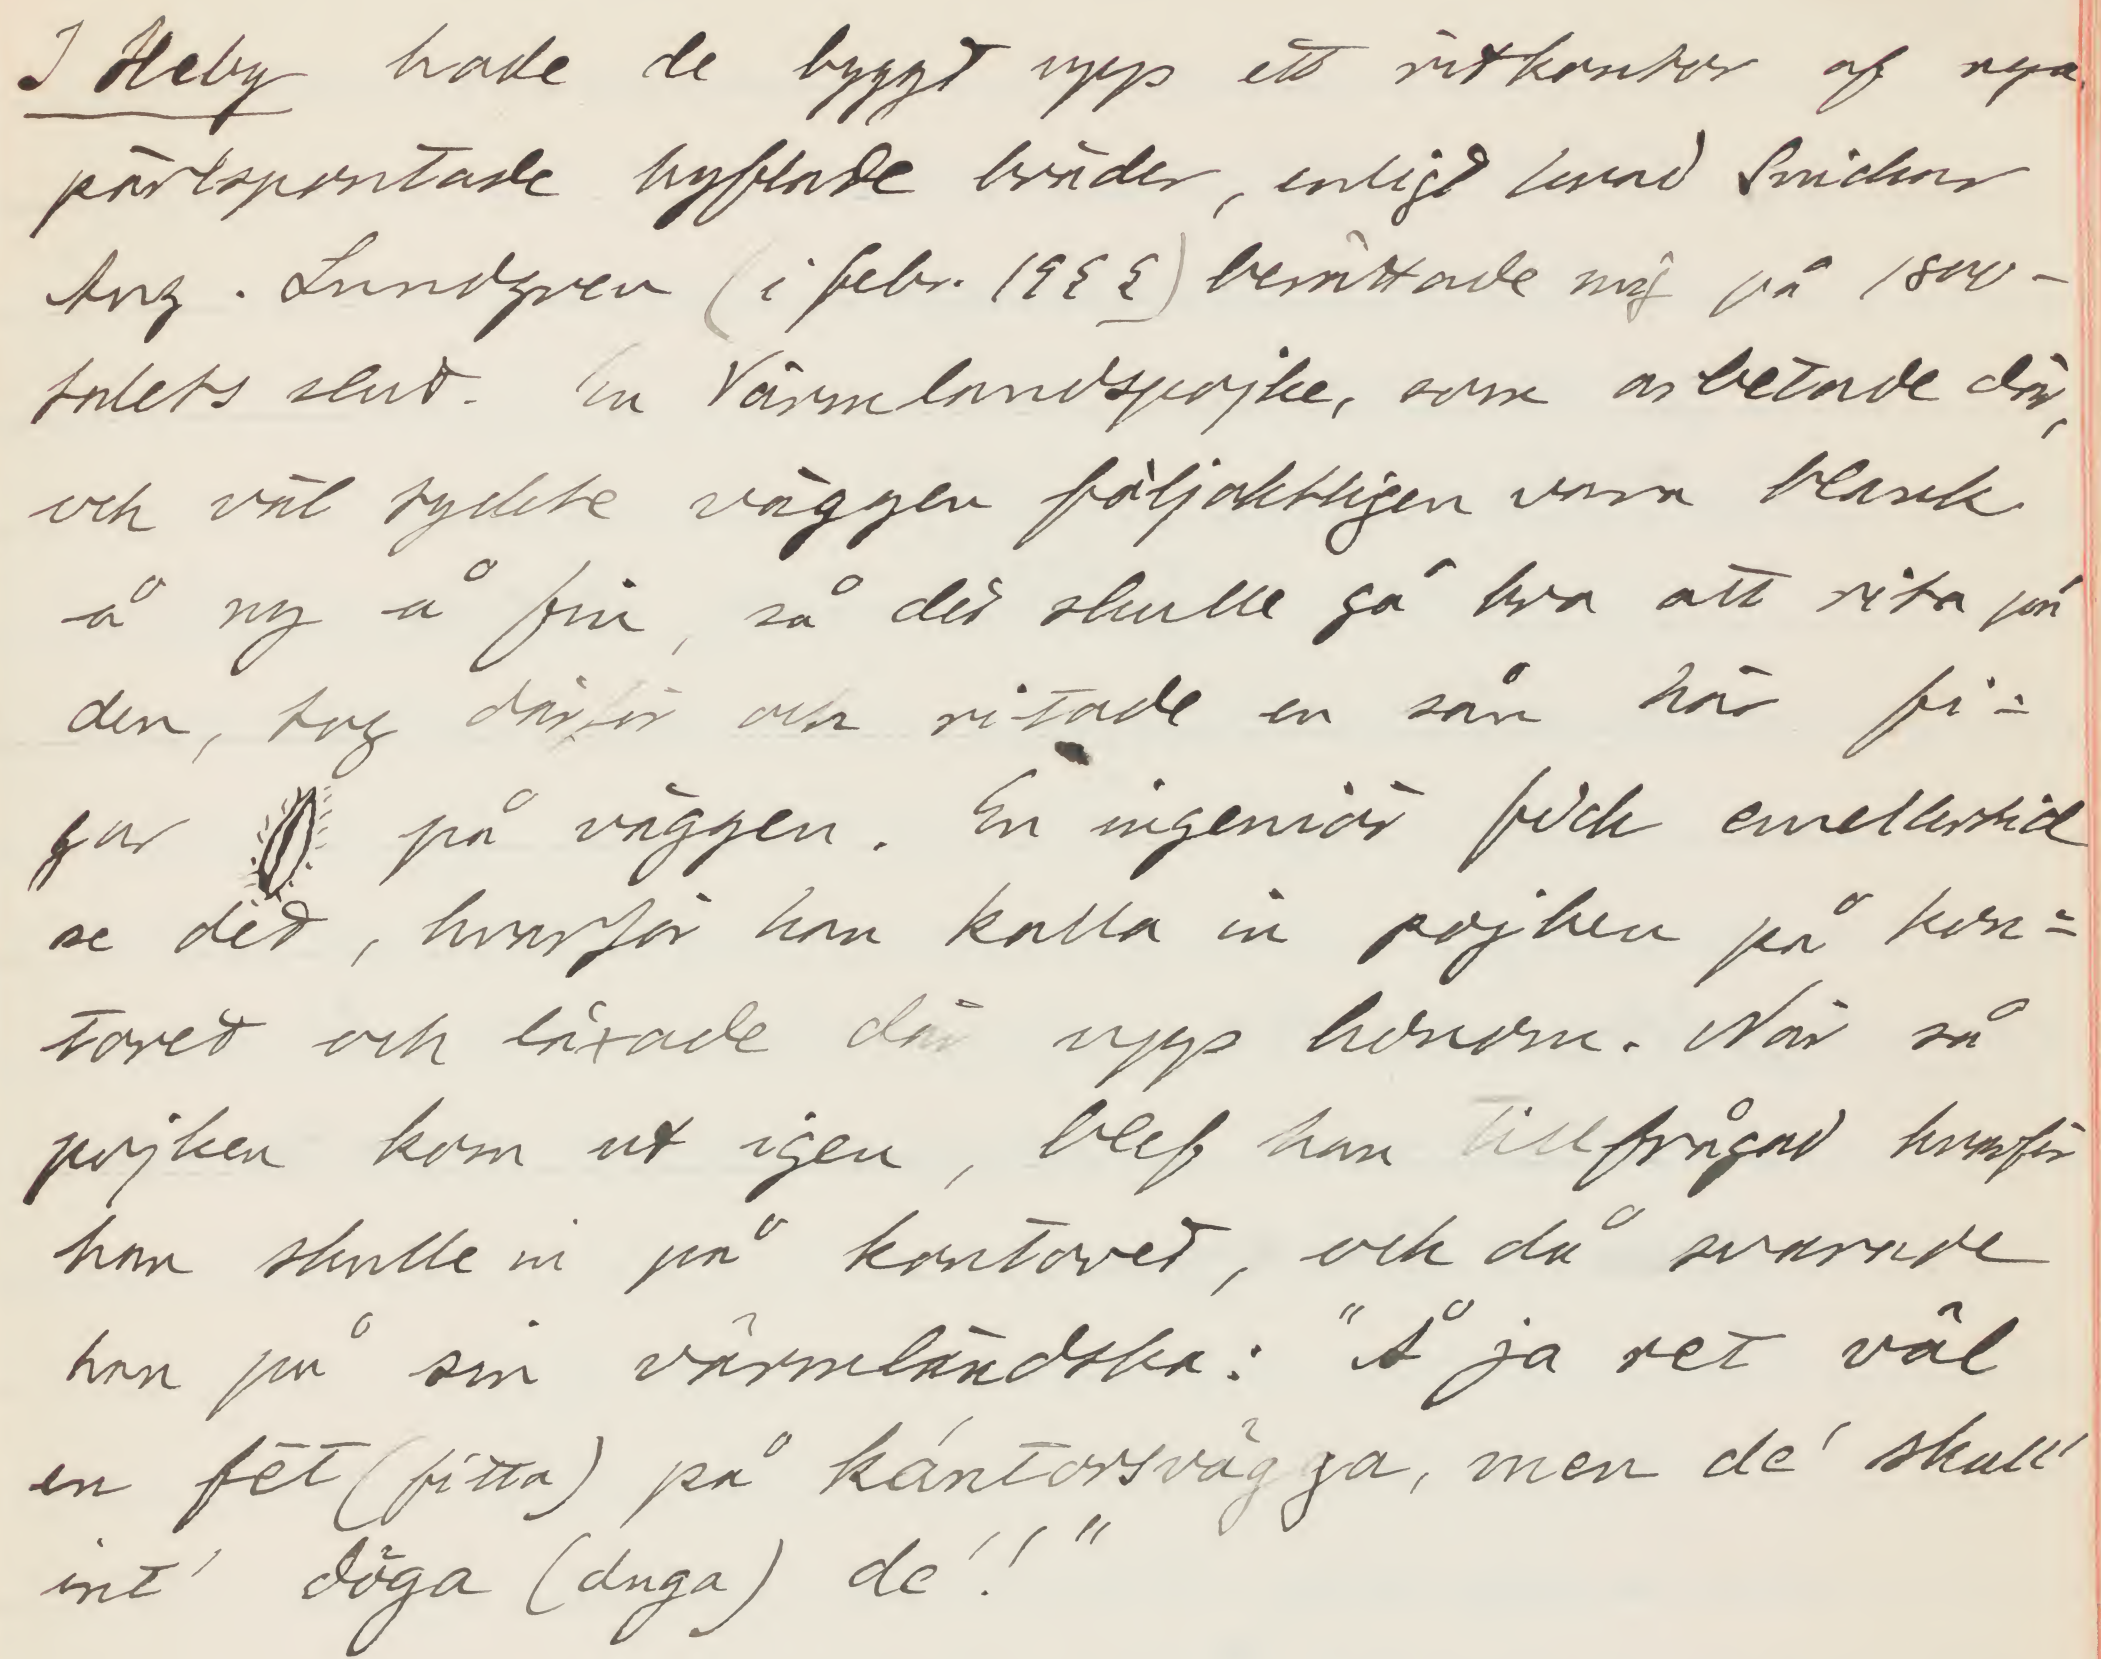 I Heby hade de byggt upp ett ritkontor af nya
pärlspontade hyflade bräder, enligt hvad Snickar
Aug. Lundgren (i febr. 1922) berättade mig på 1800-
talets slut. En Värmlandspojke, som arbetade där,
och väl tyckte väggen följaktligen vara blank
å ny å fin, så det skulle gå bra att rita på
den, tog därför och ritade en sån här fi=
gur på väggen. En ingeniör fick emellertid
se det, hvarför han kalla in pojken på kon=
toret och läxade där upp honom. När så
pojken kom ut igen, blef han tillfrågad hvarför
han skulle in på kontoret, och då svarade
han på sin värmländska: "Å ja ret väl
en fet (fitta) på kántorsvägga, men de' skull'
int' döga (duga) de'!"